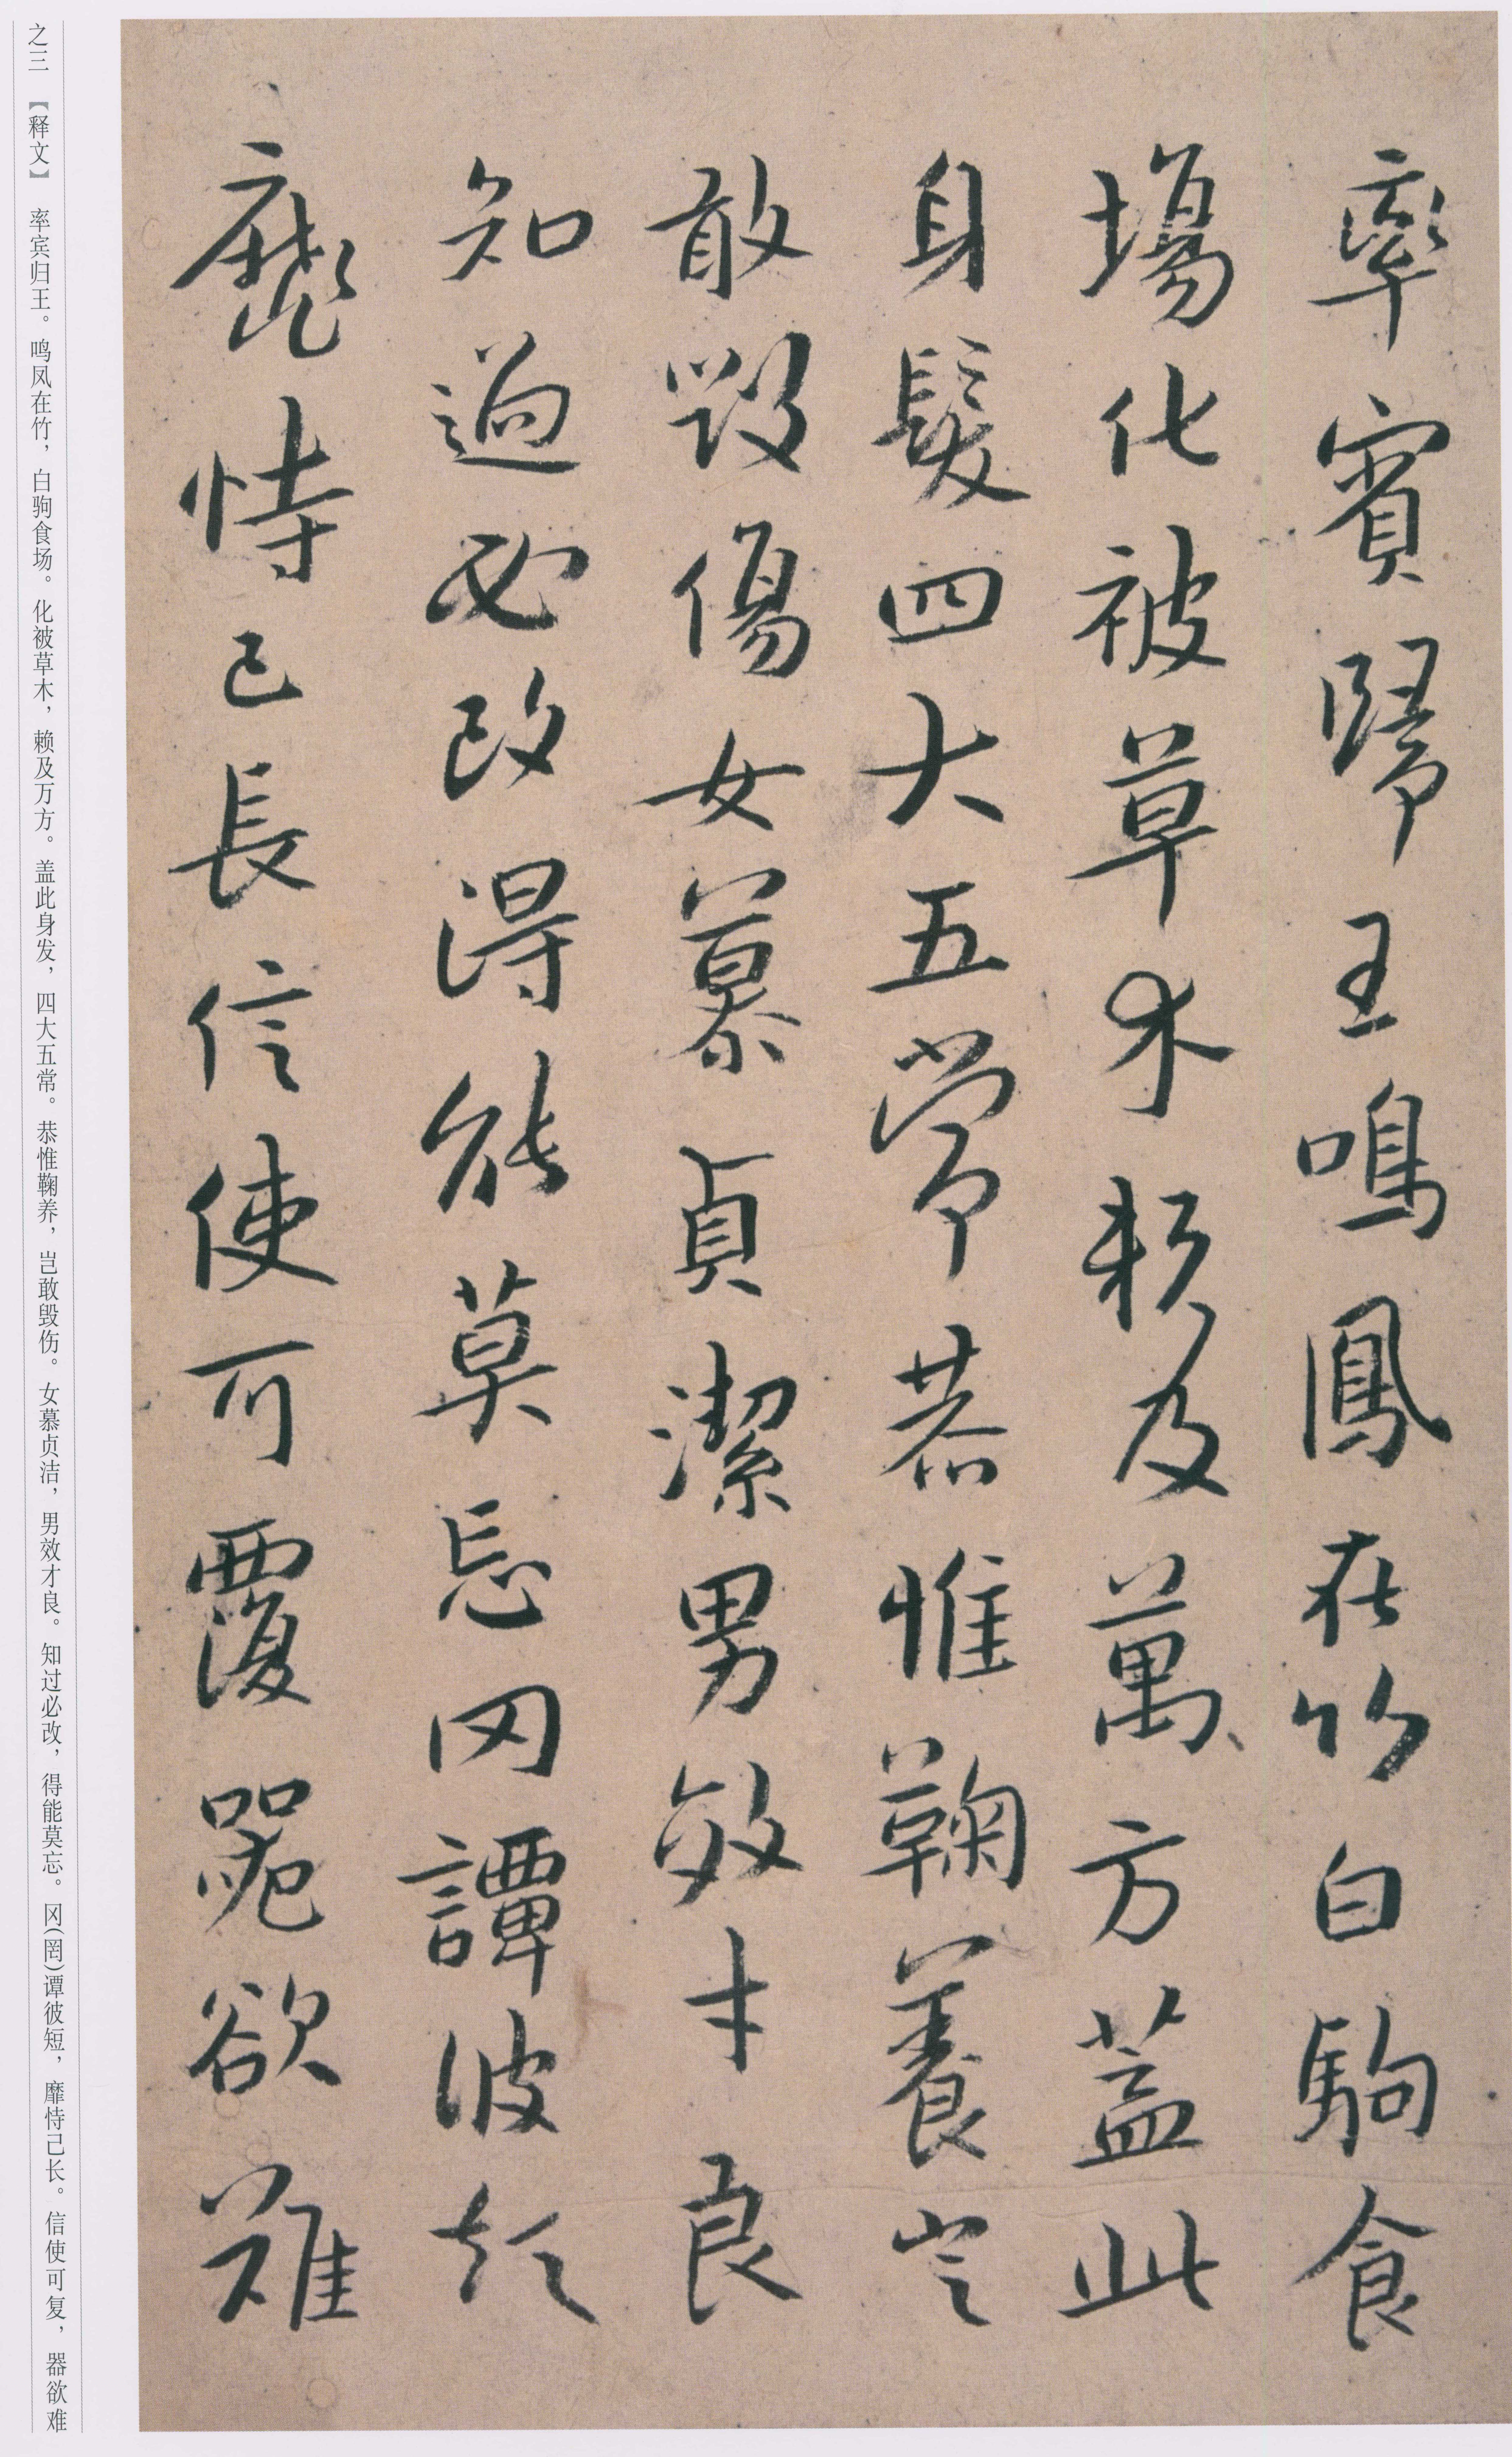 率賓歸王鳴鳳在竹白駒食
場化被草木賴及萬方蓋此
身髮四大五常恭惟鞠養豈
敢毀傷女慕貞潔男效才良
知過必改得能莫忘罔譚彼短
靡恃己長信使可覆器欲難
之三 【释文】 率宾归王。鸣凤在竹，白驹食场。化被草木，赖及万方。盖此身发，四大五常。恭惟鞠养，岂敢毁伤。女慕贞洁，男效才良。知过必改，得能莫忘。冈(罔)谭彼短，靡恃己长。信使可复，器欲难